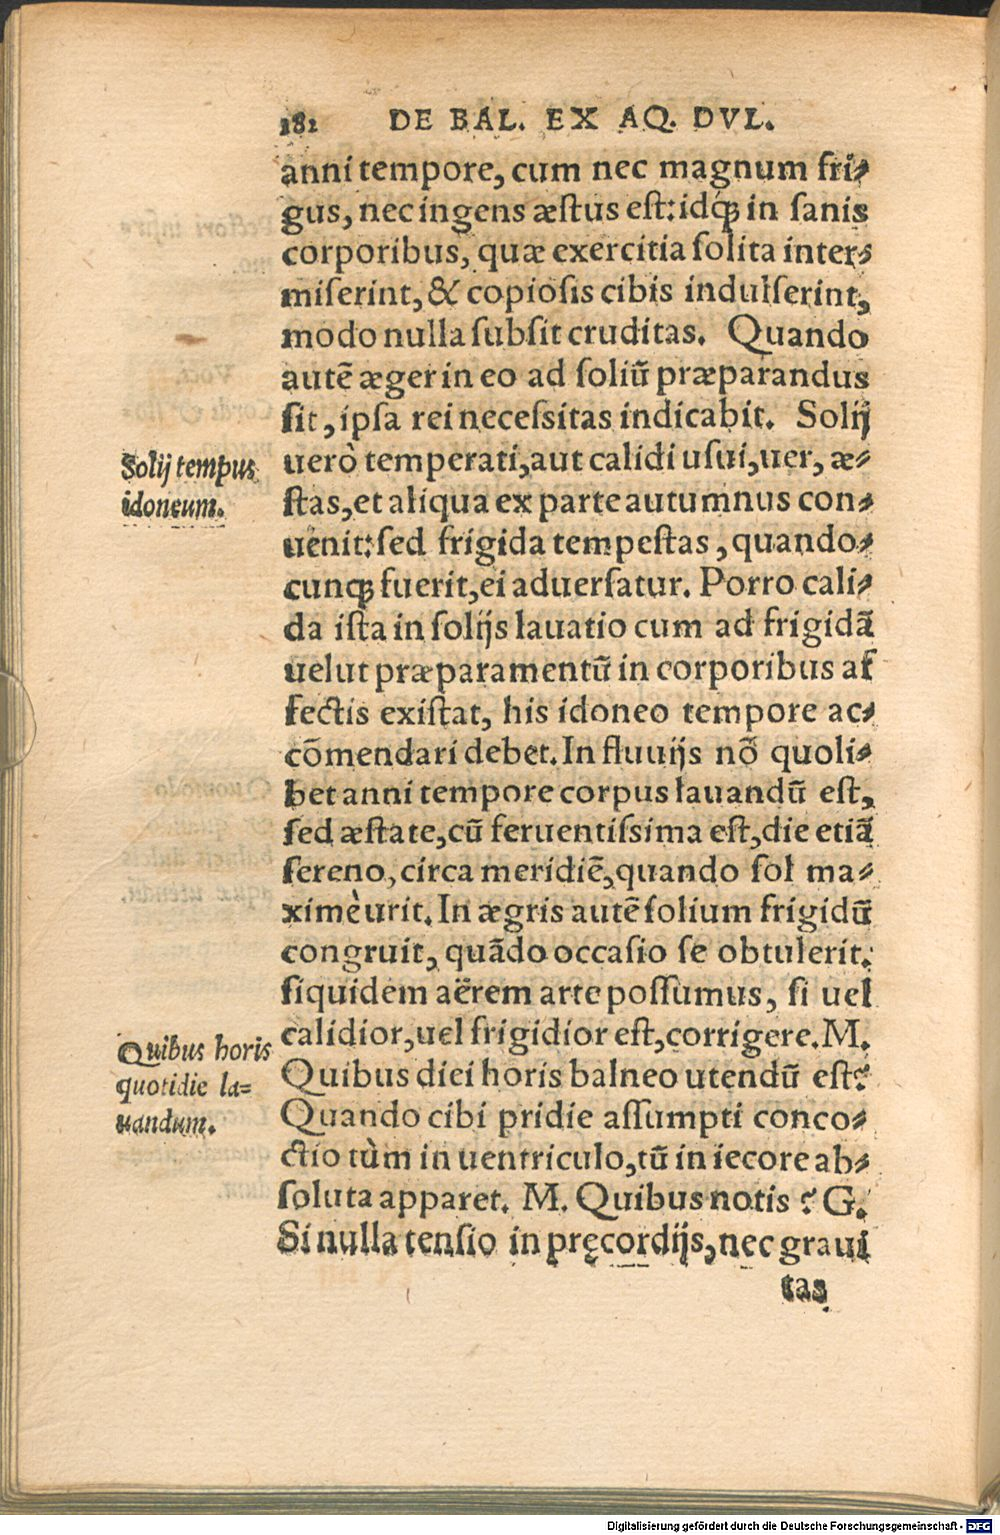 182 DE BAL. EX AQ. DVL.
anni tempore, cum nec magnum fri-
gus, nec ingens æstus est: idq́; in sanis
corporibus, quæ exercitia solita inter-
miserint, & copiosis cibis indulserint,
modo nulla subsit cruditas. Quando
autẽ æger in eo ad soliũ præparandus
sit, ipsa rei necessitas indicabit. Solij
uerò temperati, aut calidi usui, uer, æ-
stas, et aliqua ex parte autumnus con-
uenit: sed frigida tempestas, quando-
cunq; fuerit, ei aduersatur. Porro cali-
da ista in solijs lauatio cum ad frigidã
uelut præparamentũ in corporibus af
fectis existat, his idoneo tempore ac-
cõmendari debet. In fluuijs nõ quoli-
bet anni tempore corpus lauandũ est,
sed æstate, cũ feruentissima est, die etiã
sereno, circa meridiẽ, quando sol ma-
ximè urit. In ægris autẽ solium frigidũ
congruit, quãdo occasio se obtulerit:
siquidem aërem arte possumus, si uel
calidior, uel frigidior est, corrigere. M.
Quibus diei horis balneo utendũ est?
Quando cibi pridie assumpti conco-
ctio tùm in uentriculo, tũ in iecore ab-
soluta apparet. M. Quibus notis? G.
Si nulla tensio in pręcordijs, nec graui
tas
Solij tempus
idoneum.
Quibus horis
quotidie la=
uandum.
Digitalisierung gefördert durch die Deutsche Forschungsgemeinschaft - DFG